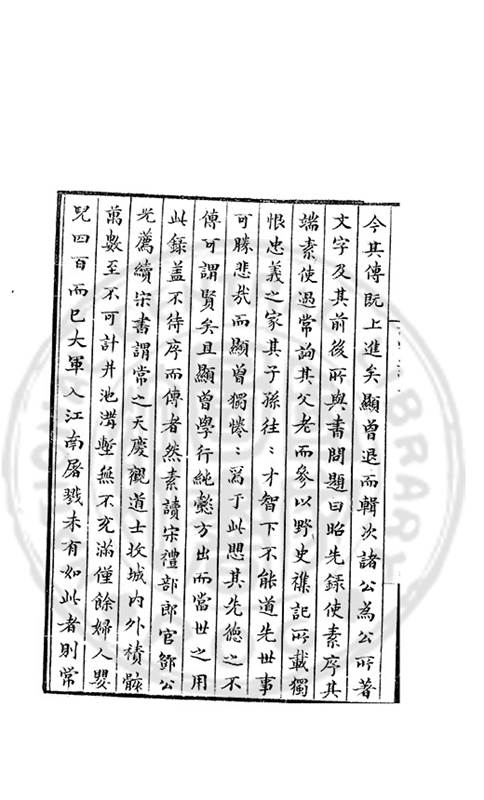 今其傳既上進矣顯曾退而輯次諸公為公所著
文字及其前後所與書問題曰昭先錄使素序其
端素使過常詢其父老而參以野史襍記所載獨
恨忠義之家其子孫往〻才智下不能道先世事
可勝悲哉而顯曾獨惓〻焉于此思其先德之不
傳可謂賢矣且顯曾學行純懿方出而當世之用
此錄蓋不待序而傳者然素讀宋禮部郎官鄧公
光薦續宋書謂常之天慶觀道士收城內外積骸
萬數至不可計井池溝塹無不充滿僅餘婦人嬰
兒四百而已大軍入江南屠戮未有如此者則常